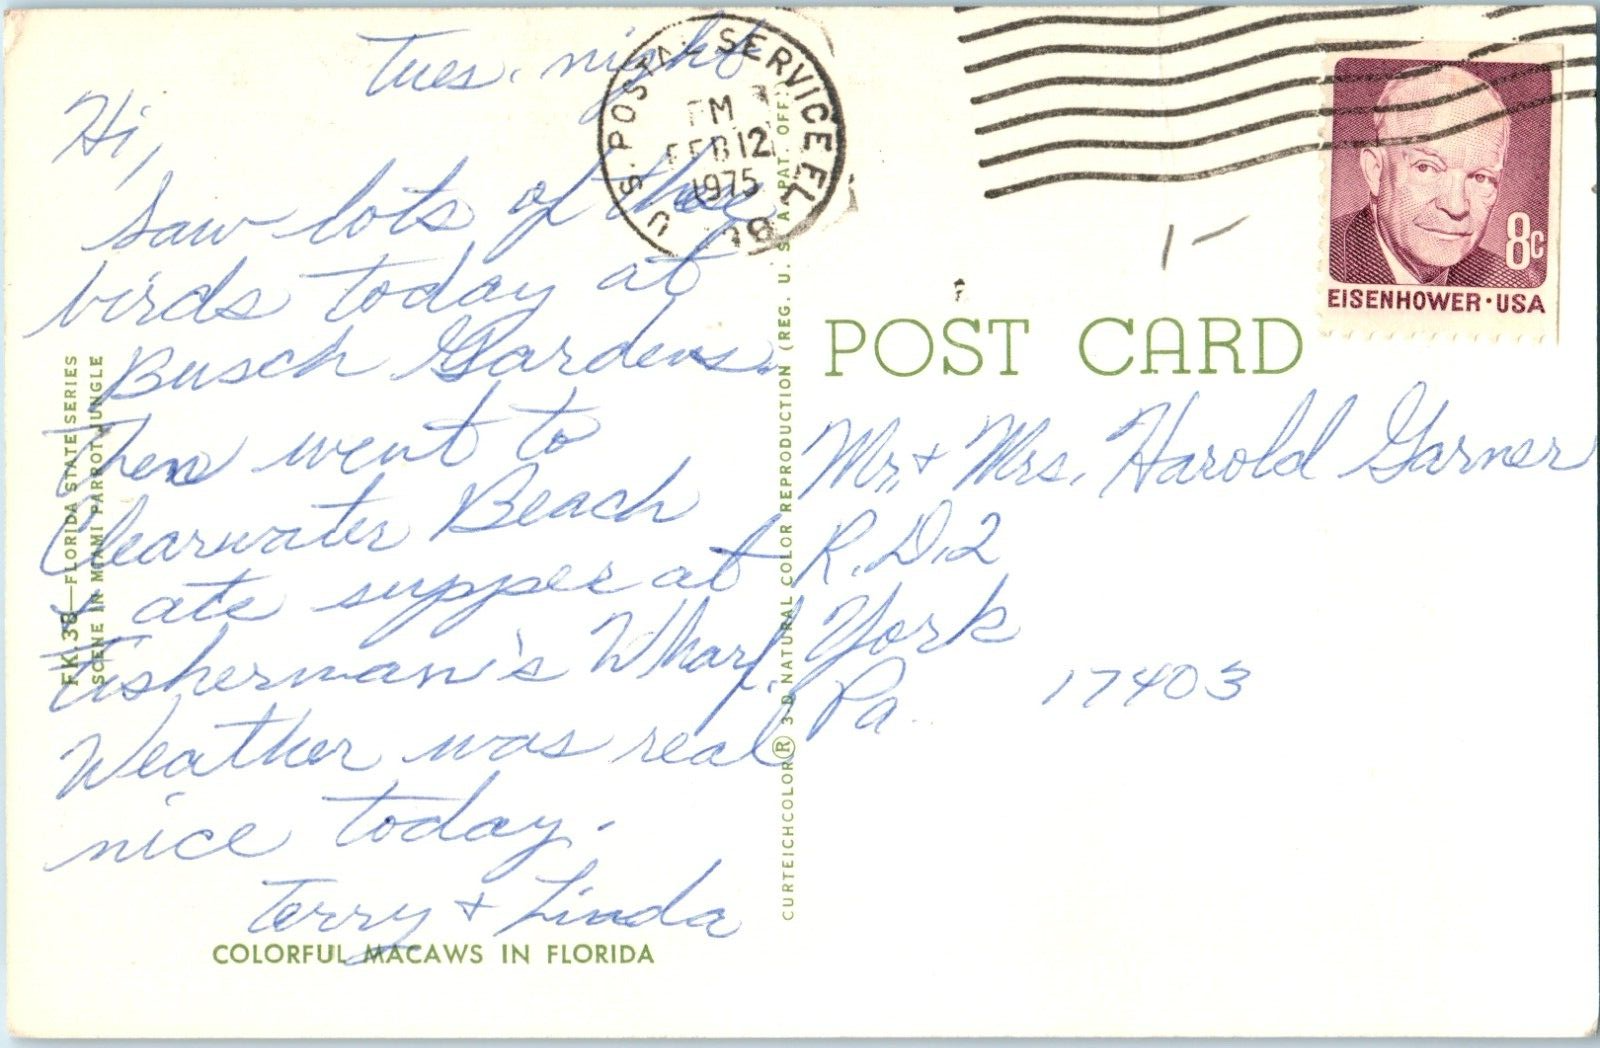 Tues. night
Hi,
Saw lots of these
birds today at
Busch Gardens.
Then went to
Clearwater Beach
& ate supper at
Fisherman's Wharf.
Weather was real
nice today.
Terry & Linda
COLORFUL MACAWS IN FLORIDA
FK.38—FLORIDA STATE SERIES
SCENE IN MIAMI PARROT JUNGLE
CURTEICHCOLOR® 3-D NATURAL COLOR REPRODUCTION (REG. U. S. A. PAT. OFF.)
U. S. POSTAL SERVICE FL
PM
FEB 12
1975
EISENHOWER·USA
8c
POST CARD
Mr. & Mrs. Harold Garner
R.D.2
York
Pa. 17403